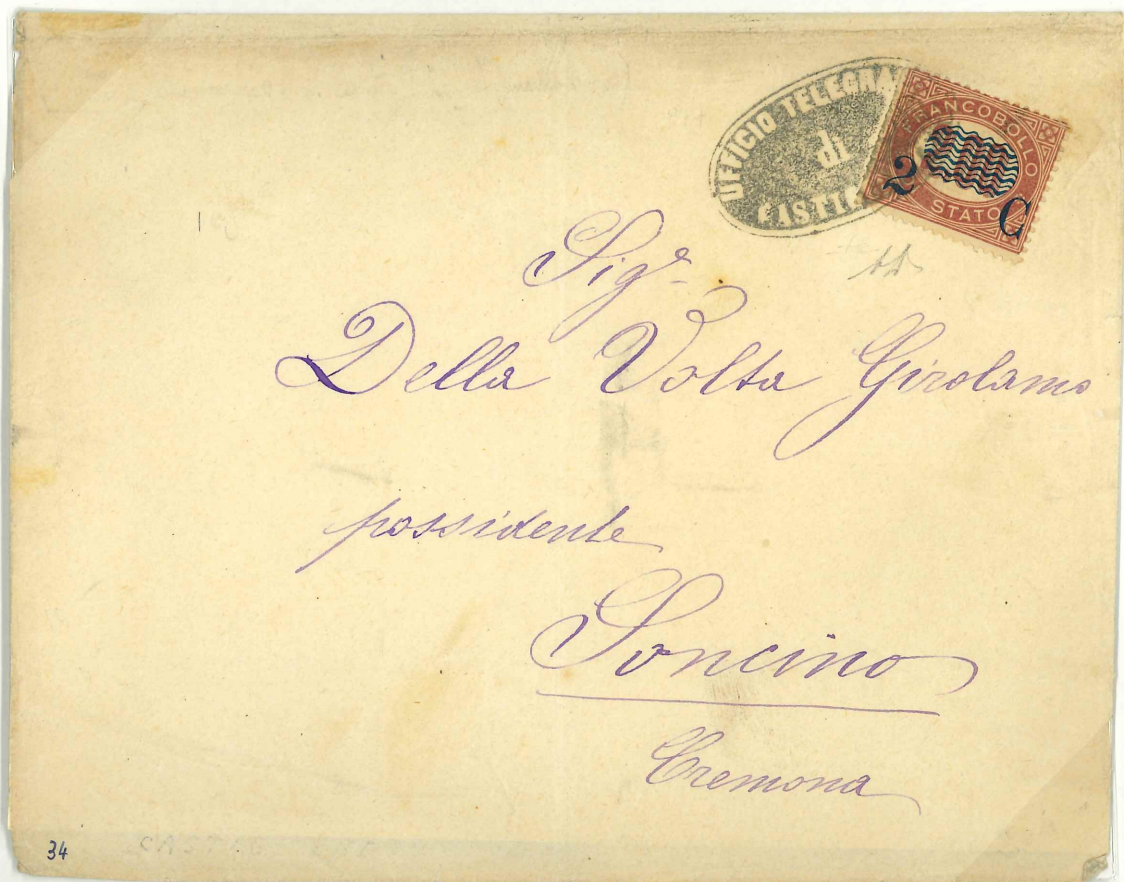 UFFICIO TELEGRA
di
FRANCOBOLLO
2 C
STATO
Sig.r
Della Volta Girolamo
possidente
Soncino
Cremona
34